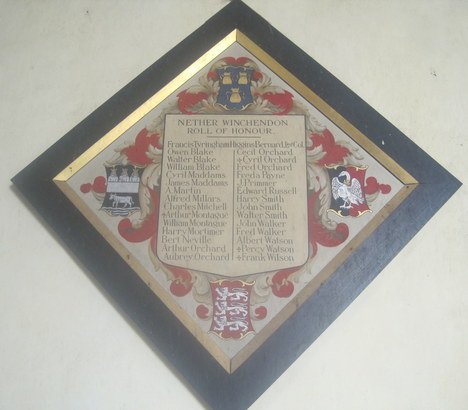 NETHER WINCHENDON
ROLL OF HONOUR
Francis Tyringham Higgins Bernard Lt Col.
Owen Blake
Walter Blake
William Blake
Cyril Maddams
James Maddams
A. Martin
Alfred Millars
Charles Mitchell
+Arthur Montague
William Montague
Harry Mortimer
Bert Neville
Arthur Orchard
Aubrey Orchard
Cecil Orchard
+Cyril Orchard
Fred Orchard
Freda Payne
J. Primmer
Edward Russell
Harry Smith
John Smith
Walter Smith
John Walker
Fred Walker
Albert Watson
+Percy Watson
+Frank Wilson